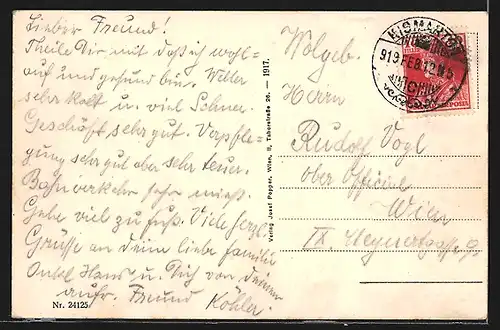 Lieber Freund!
Theile Dir mit daß ich wohl-
auf und gesund bin. Wetter
sehr kalt u. viel Schnee.
Geschäft sehr gut. Verpfle-
gung sehr gut aber sehr teuer.
Bahnverkehr sehr
Gehe viel zu Fuß. Viele herzl.
Grüsse an deine liebe Familie
Onkel Hans u. Dich von deinem
aufr. Freund Köhler.
Nr. 24125
Verlag Josef Popper, Wien, II, Taborstraße 26. — 1917.
919 FEB. 12
Wolgeb.
Herrn
Rudolf Vogl
ober Official
Wien
IX